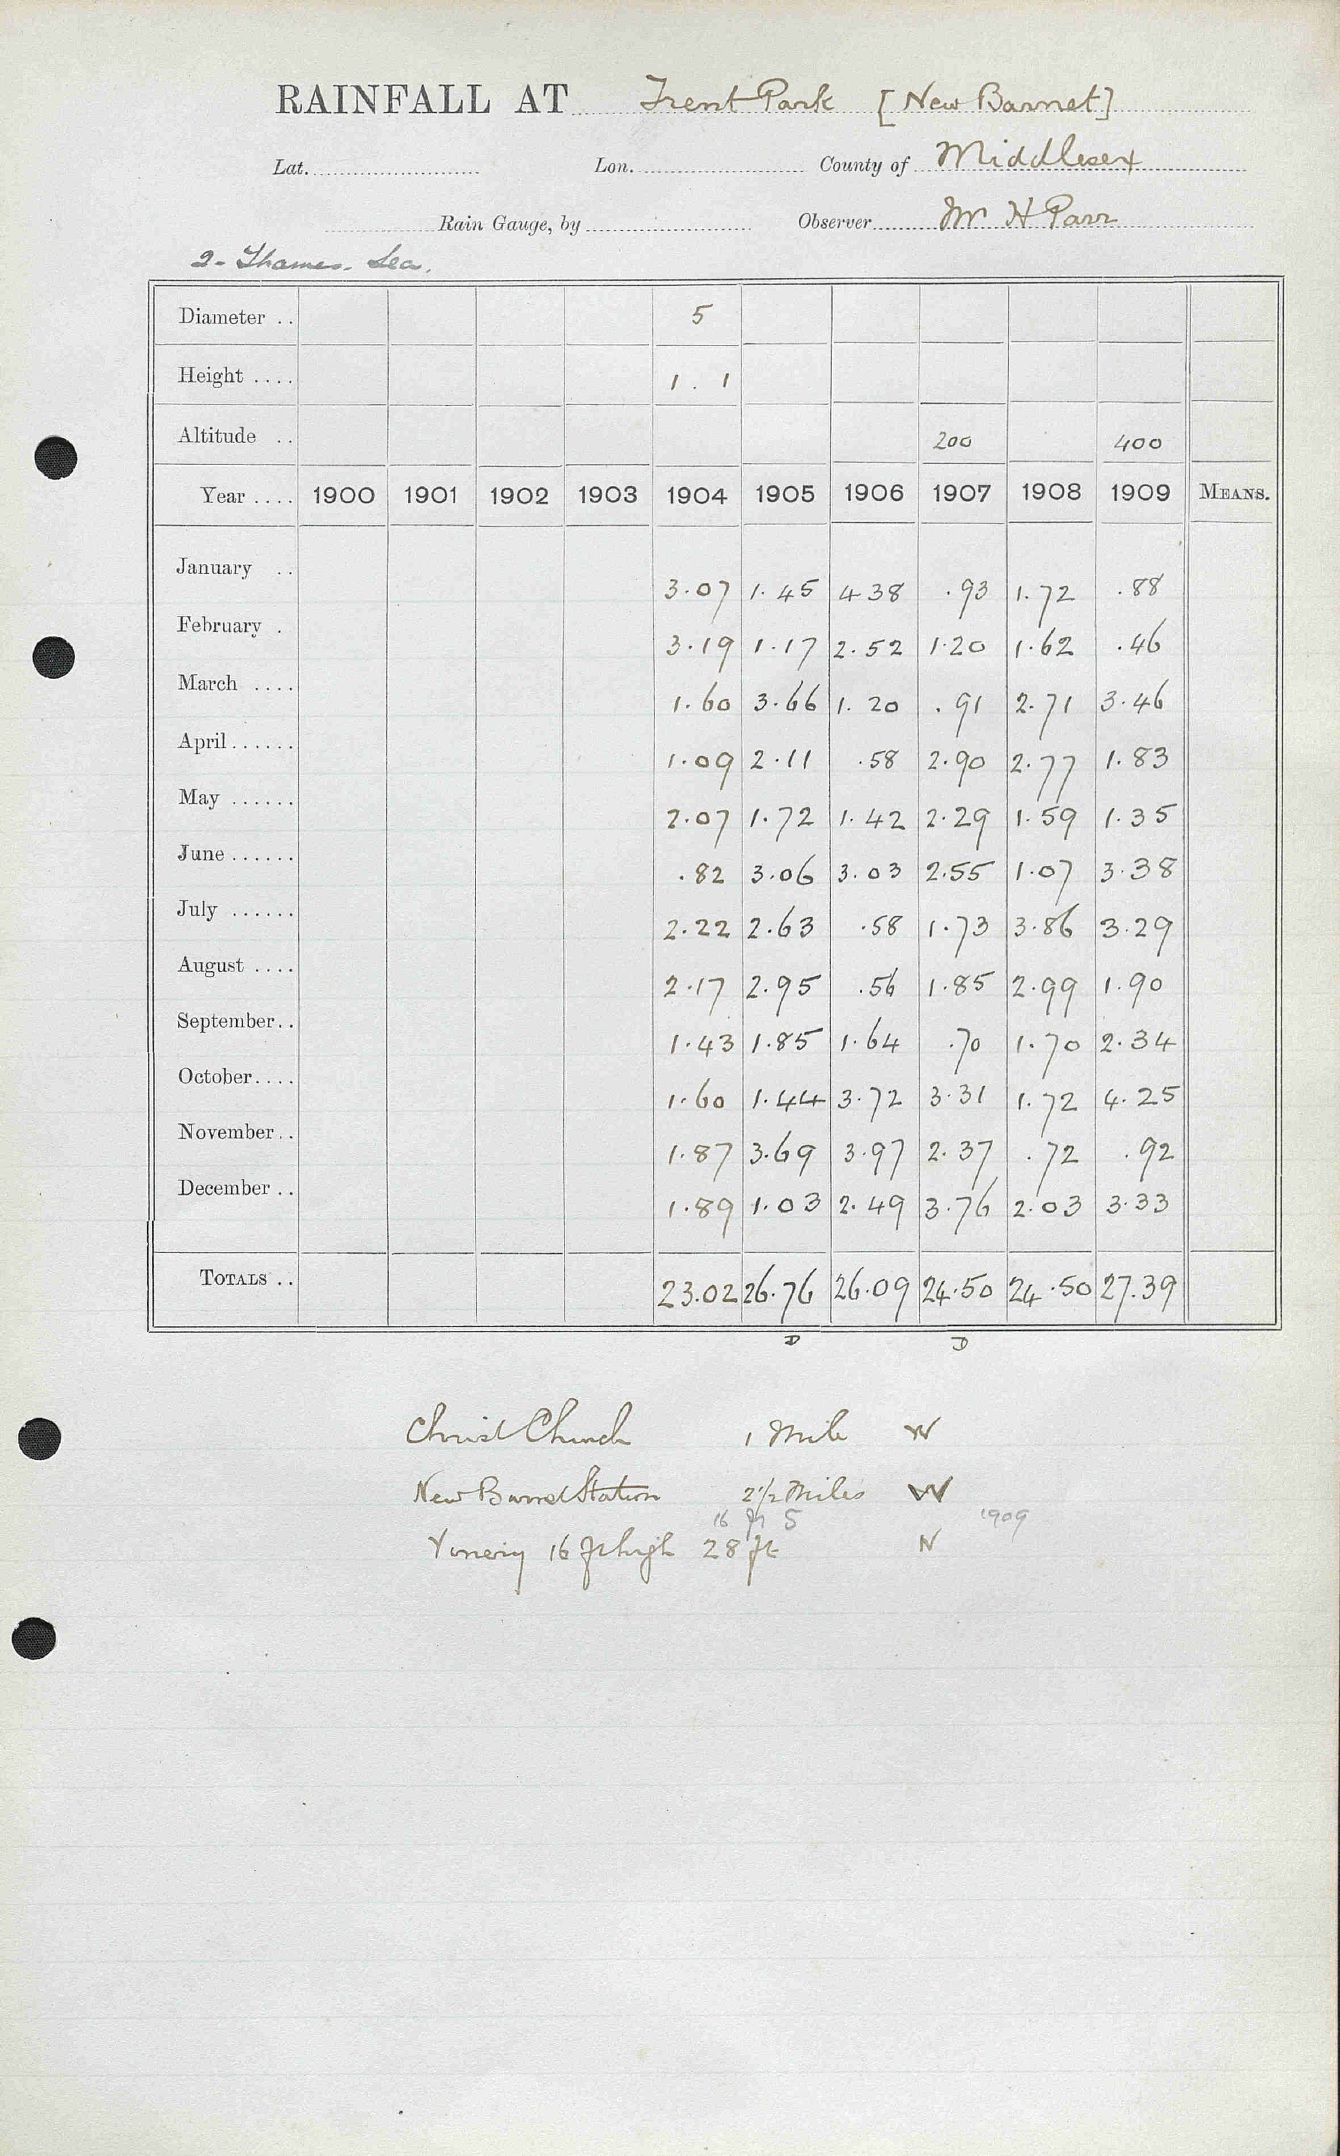 RAINFALL AT Trent Park [New Barnet]
Lat. Lon. County of Middlesex
Rain Gauge, by Observer Mr H Parr
2 - Thames - Lea.
Diameter .. 5
Height .... 1 . 1
Altitude .. 200 400
Year .... 1900 1901 1902 1903 1904 1905 1906 1907 1908 1909 MEANS.
January .. 3.07 1.45 4 38 .93 1.72 .88
February . 3.19 1.17 2.52 1.20 1.62 .46
March .... 1.60 3.66 1.20 .91 2.71 3.46
April ...... 1.09 2.11 .58 2.90 2.77 1.83
May ...... 2.07 1.72 1.42 2.29 1.59 1.35
June ...... .82 3.06 3.03 2.55 1.07 3.38
July ...... 2.22 2.63 .58 1.73 3.86 3.29
August .... 2.17 2.95 .56 1.85 2.99 1.90
September.. 1.43 1.85 1.64 .70 1.70 2.34
October.... 1.60 1.44 3.72 3.31 1.72 4.25
November.. 1.87 3.69 3.97 2.37 .72 .92
December .. 1.89 1.03 2.49 3.76 2.03 3.33
TOTALS .. 23.02 26.76 26.09 24.50 24.50 27.39
D D
Christ Church 1 Mile W
New Barnet Station 2 1/2 Miles W
16 ft 5 1909
Vinery 16 ft high 28 ft N